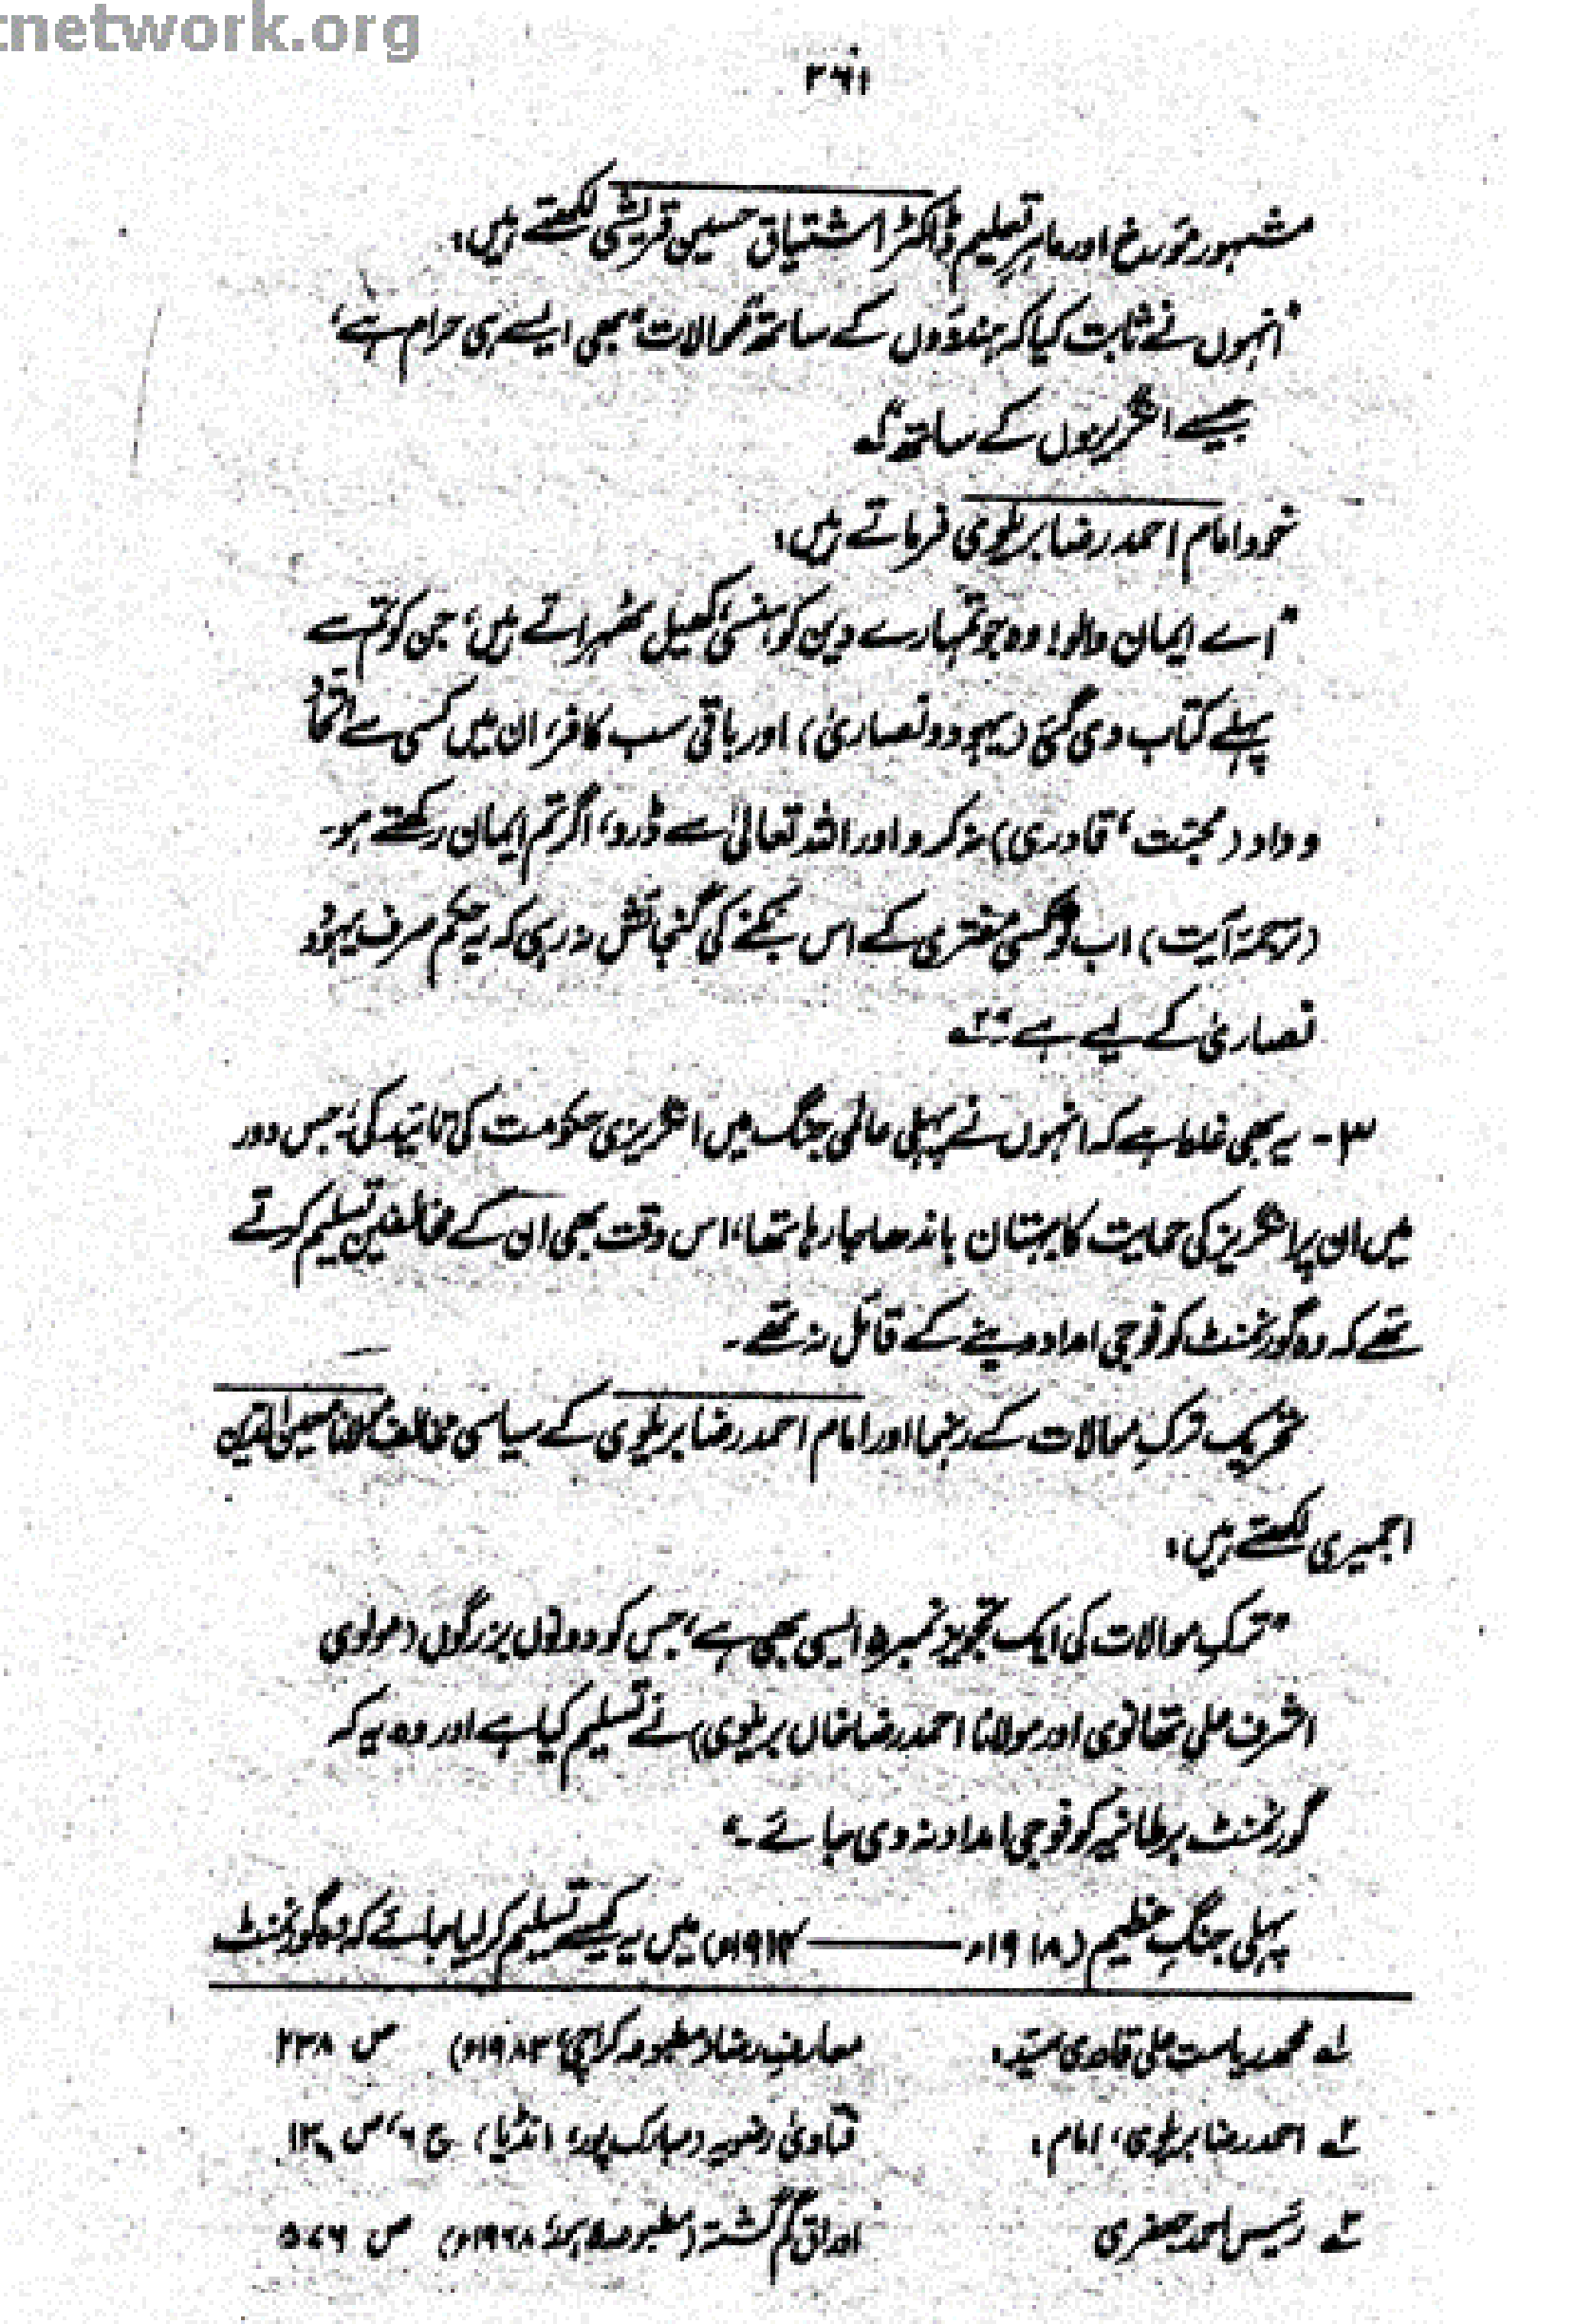 tnetwork.org
۲۶۱
مشہور مؤرخ اور ماہرِ تعلیم ڈاکٹر اشتیاق حسین قریشی لکھتے ہیں:
"انہوں نے ثابت کیا کہ ہندوؤں کے ساتھ "موالات" بھی ایسے ہی حرام ہے،
جیسے انگریزوں کے ساتھ" ۱ے
خود امام احمد رضا بریلوی فرماتے ہیں:
"اے ایمان والو! وہ جو تمہارے دین کو ہنسی کھیل ٹھہراتے ہیں، جن کو تم سے
پہلے کتاب دی گئی (یہود و نصاریٰ) اور باقی سب کافر، ان میں کسی سے اتحاد
و وداد (محبت، قادری) نہ کرو اور اللہ تعالیٰ سے ڈرو، اگر تم ایمان رکھتے ہو۔
(ترجمہ آیت) اب تو کسی مفتری کے اس بکنے کی گنجائش نہ رہی کہ یہ حکم صرف یہود
نصاریٰ کے لیے ہے۔" ۲ے
۳- یہ بھی غلط ہے کہ انہوں نے پہلی عالمی جنگ میں انگریزی حکومت کی تائید کی، جس دور
میں ان پر انگریز کی حمایت کا بہتان باندھا جا رہا تھا، اس وقت بھی ان کے مخالفین تسلیم کرتے
تھے کہ وہ گورنمنٹ کو فوجی امداد دینے کے قائل نہ تھے۔
تحریک ترکِ موالات کے رہنما اور امام احمد رضا بریلوی کے سیاسی مخالف مولانا معین الدین
اجمیری لکھتے ہیں:
"ترکِ موالات کی ایک تجویز نمبر ۵ ایسی بھی ہے، جس کو دونوں بزرگوں (مولوی
اشرف علی تھانوی اور مولانا احمد رضا خاں بریلوی) نے تسلیم کیا ہے اور وہ یہ کہ
گورنمنٹ برطانیہ کو فوجی امداد نہ دی جائے۔"
پہلی جنگِ عظیم (۱۹۱۸ء —— ۱۹۱۴ء) میں یہ کیسے تسلیم کر لیا جائے کہ وہ گورنمنٹ
۱ے محمد ریاست علی قادری سید: معارفِ رضا (مطبوعہ کراچی ۱۹۸۳ء) ص ۲۳۸
۲ے احمد رضا بریلوی، امام: فتاویٰ رضویہ (مبارک پور، انڈیا) ج ۶، ص
۳ے رئیس احمد جعفری اوراق گم گشتہ (مطبوعہ لاہور ۱۹۶۸ء) ص ۵۷۶